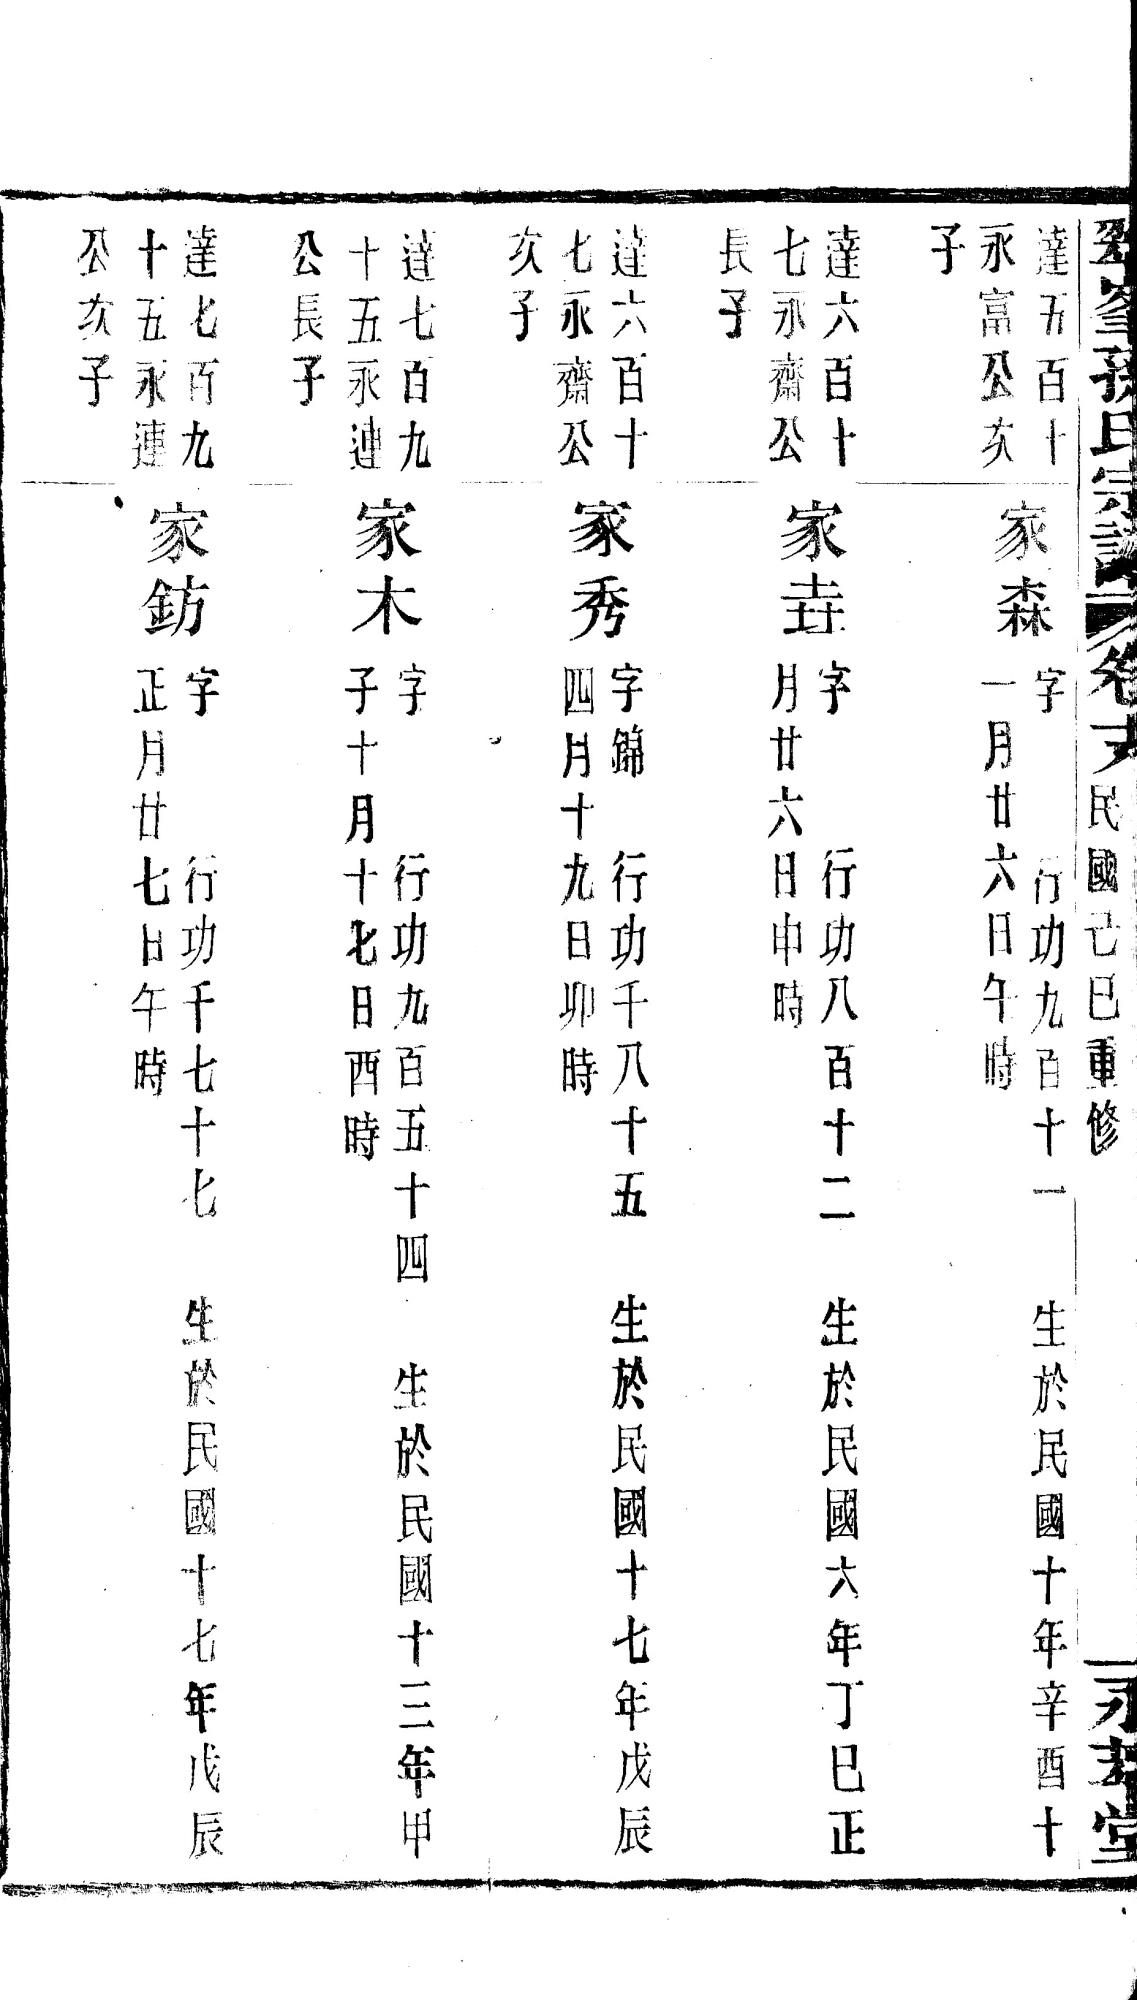 孫氏宗譜 卷 民國己巳重修 永 堂
達五百十
永富公次
子
家森
字 行功九百十一 生於民國十年辛酉十
一月廿六日午時
達六百十
七永齋公
長子
家壵
字 行功八百十二 生於民國六年丁巳正
月廿六日申時
達六百十
七永齋公
次子
家秀
字錦 行功千八十五 生於民國十七年戊辰
四月十九日卯時
達七百九
十五永連
公長子
家木
字 行功九百五十四 生於民國十三年甲
子十月十七日酉時
達七百九
十五永連
公次子
家鈁
字 行功千七十七 生於民國十七年戊辰
正月廿七日午時